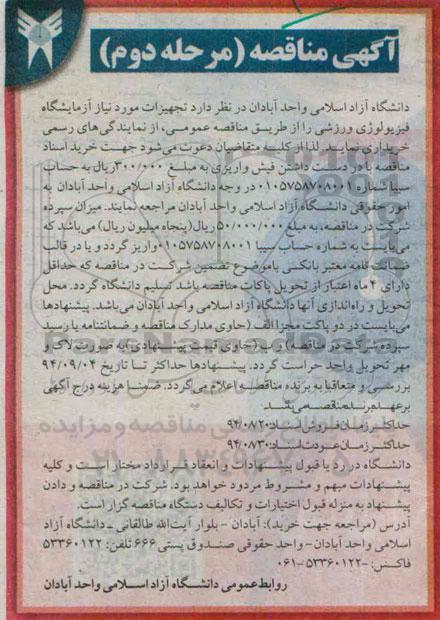 آگهی مناقصه (مرحله دوم)
دانشگاه آزاد اسلامی واحد آبادان در نظر دارد تجهیزات مورد نیاز آزمایشگاه
فیزیولوژی ورزشی را از طریق مناقصه عمومی، از نمایندگی‌های رسمی
خریداری نماید. لذا از کلیه متقاضیان دعوت می‌شود جهت خرید اسناد
مناقصه با در دست داشتن فیش واریزی به مبلغ ۳۰۰/۰۰۰ ریال به حساب
سیبا شماره ۰۱۰۵۷۵۸۷۰۸۰۰۱ در وجه دانشگاه آزاد اسلامی واحد آبادان به
امور حقوقی دانشگاه آزاد اسلامی واحد آبادان مراجعه نمایند. میزان سپرده
شرکت در مناقصه، به مبلغ ۵۰/۰۰۰/۰۰۰ ریال (پنجاه میلیون ریال) می‌باشد که
می‌بایست به شماره حساب سیبا ۰۱۰۵۷۵۸۷۰۸۰۰۱ واریز گردد و یا در قالب
ضمانت‌نامه معتبر بانکی باموضوع تضمین شرکت در مناقصه که حداقل
دارای ۴ ماه اعتبار از تحویل پاکات مناقصه باشد تسلیم دانشگاه گردد. محل
تحویل و راه‌اندازی آنها دانشگاه آزاد اسلامی واحد آبادان می‌باشد. پیشنهادها
می‌بایست در دو پاکت مجزا الف (حاوی مدارک مناقصه و ضمانتنامه یا رسید
سپرده شرکت در مناقصه) و ب (حاوی قیمت پیشنهادی) به صورت لاک و
مهر تحویل واحد حراست گردد. پیشنهادها حداکثر تا تاریخ ۹۴/۰۹/۰۴
بررسی و متعاقبا به برنده مناقصه اعلام می‌گردد. ضمنا هزینه درج آگهی
برعهده برنده مناقصه می‌باشد
حداکثر زمان فروش اسناد: ۹۴/۰۸/۲۰
حداکثر زمان عودت اسناد: ۹۴/۰۸/۳۰
دانشگاه در رد یا قبول پیشنهادات و انعقاد قرارداد مختار است و کلیه
پیشنهادات مبهم و مشروط مردود خواهد بود. شرکت در مناقصه و دادن
پیشنهاد به منزله قبول اختیارات و تکالیف دستگاه مناقصه گزار است.
آدرس (مراجعه جهت خرید): آبادان - بلوار آیت‌الله طالقانی - دانشگاه آزاد
اسلامی واحد آبادان - واحد حقوقی صندوق پستی ۶۶۶ تلفن: ۵۳۳۶۰۱۲۲
فاکس: ۵۳۳۶۰۱۲۲-۰۶۱
روابط عمومی دانشگاه آزاد اسلامی واحد آبادان